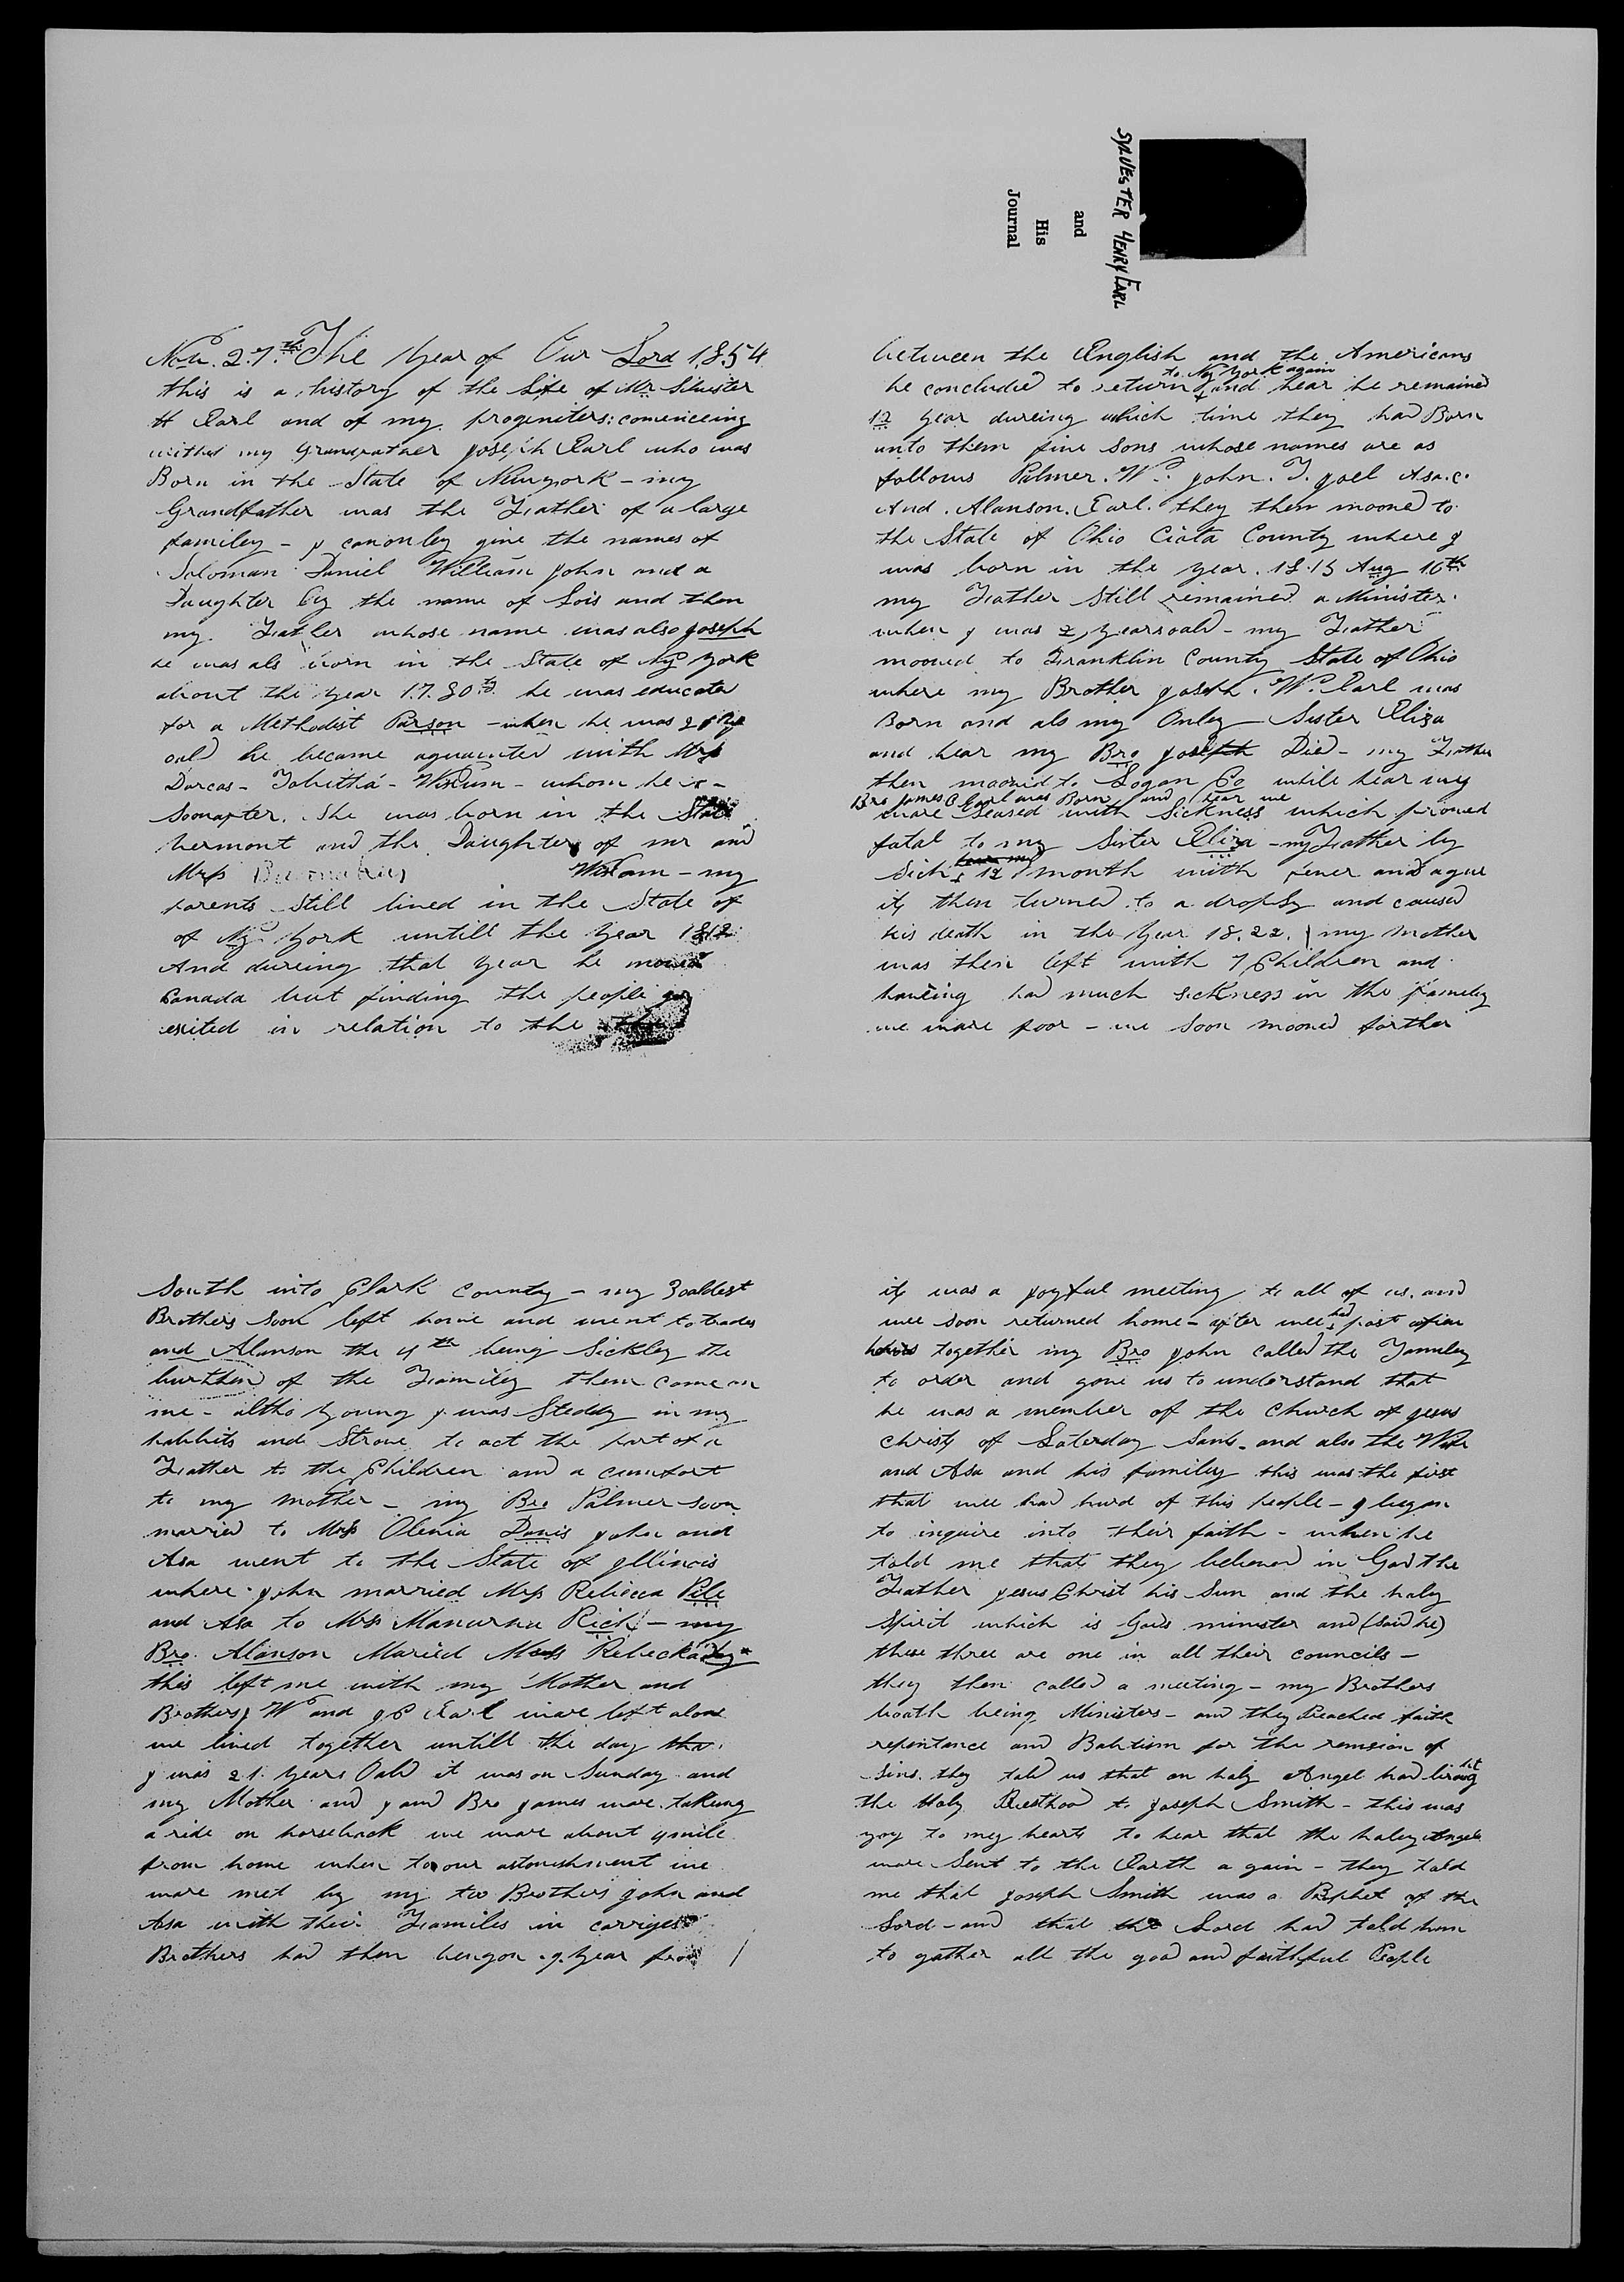 SYLVESTER HENRY EARL
and
His
Journal
Nov. 27.th The Year of Our Lord 1854
this is a history of the Life of Mr Silvester
H Earl and of my progeniters: comenceing
withe my Grandfather Joseph Earl who was
Born in the State of Newyork - my
Grandfather was the Father of a large
familey - I canonley give the names of
Soloman Daniel William John and a
Daughter by the name of Lois and then
my Father whose name was also Joseph
he was als born in the State of N York
about the year 1780 he was educated
for a Methodist Parson - when he was
oald he became aquainted with Mrs
Dorcas - Tabitha - - whom he
Soonafter. She was born in the State
Vermont and the Daughter of mr and
Mrs - my
parents Still lived in the State of
of N York untill the year 1812
And dureing that year he moved
Canada but finding the people
exited in relation to the
between the English and the Americans
he concluded to return to N York again and hear he remained
12 year dureing which time they had Born
unto them five Sons whose names are as
follows Palmer. W. John. T. Joel Asa. C.
And. Alanson. Earl. they then mooved to
the State of Ohio Ciota County where I
was born in the year. 1815 Aug 16th
my Father Still remained a Minister.
when I was 2 years oald - my Father
mooved to Franklin County State of Ohio
where my Brother Joseph. W. Earl was
Born and als my Onley Sister Eliza
and hear my Bro Joseph Died - my Father
then mooved to Logan Co while hear my
Bro James C Earl was Born and hear we
ware Seased with Sickness which proved
fatal to my Sister Eliza - my Father ly
Sick 12 month with fever and ague
it then turned to a dropsy and caused
his death in the Year 18.22. my mother
was then left with 7 Children and
haveing had much sickness in the familey
we ware poor - we Soon mooved farther
South into Clark County - my 3 oaldest
Brothers Soon left home and went to trades
and Alanson the 4th being Sickley the
burthen of the Familey then come on
me - altho Young I was Steddy in my
habbits and Strove to act the part of a
Father to the Children and a cumfort
to my mother - my Bro Palmer Soon
married to Mrs Olenia Davis John and
Asa went to the State of Illinois
where John married Mrs Rebecca Pele
and Asa to Mrs Manurva Rich - my
Bro. Alanson Maried Rebecka
this left me with my Mother and
Brothers W and J C Earl ware left alone
we lived together untill the day tha
I was 21. years Oald it was on Sunday and
my Mother and I and Bro James ware takeing
a ride on horseback we ware about 4 mile
from home when to our astonishment we
ware met by my two Brothers John and
Asa with their Familes in carriges
Brothers had then bengon 9. year from
it was a Joyful meeting to all of us. and
wee soon returned home - after wee had past a few
hours together my Bro John called the Familey
to order and gave us to understand that
he was a member of the Church of Jesus
Christ of Laterday Sants - and also the Wife
and Asa and his familey this was the first
that wee had hurd of this people - I began
to inquire into their faith - when he
told me that they believed in God the
Father Jesus Christ his Sun and the holy
Spirit which is Gods minister and (Said he)
these three are one in all their councils -
they then called a meeting - my Brothers
boath being Ministers - and they Preached faith
repentance and Babtism for the remision of
Sins. they told us that an holy Angel had brought
the Holy Preesthod to Joseph Smith - this was
Joy to my heart to hear that the holey Angels
ware Sent to the Earth a gain - they told
me that Joseph Smith was a Prophet of the
Lord - and that the Lord had told him
to gather all the good and faithful People